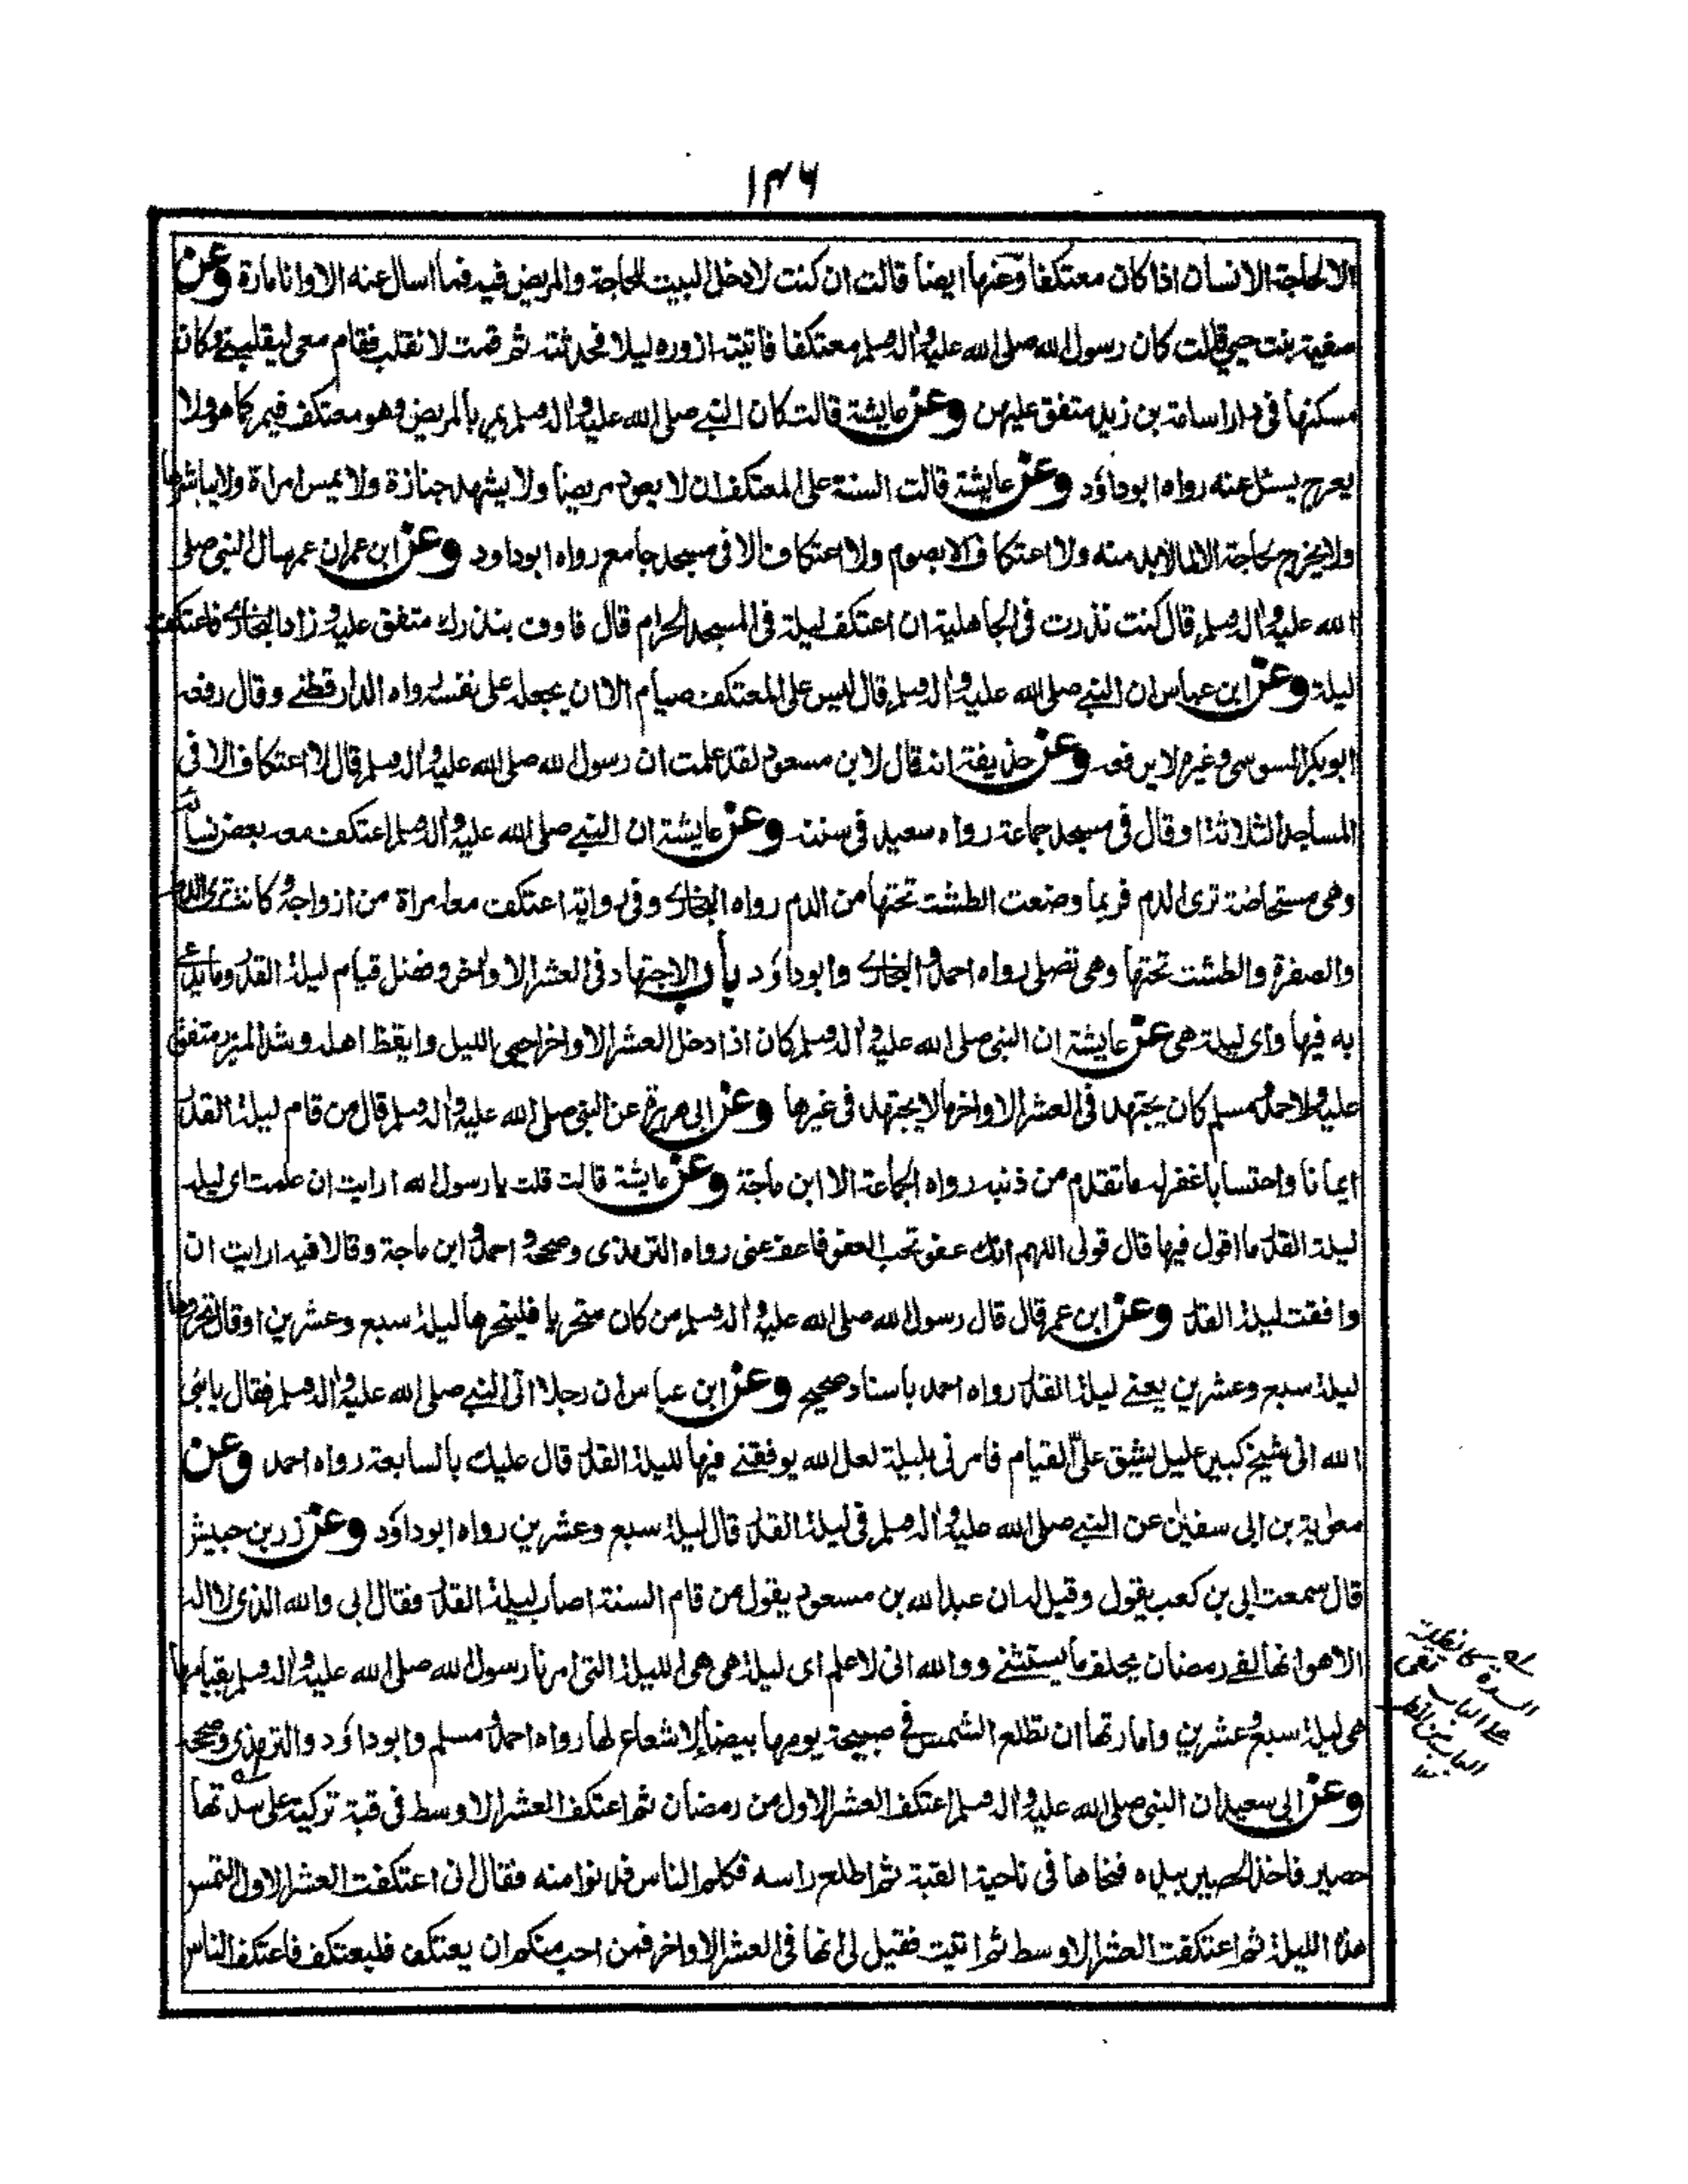 ١٣٦
الا لحاجة الانسان اذا كان معتكفا وعنها ايضا قالت ان كنت لادخل البيت للحاجة والمريض فيه فما اسال عنه الا وانا مارة وعن
صفية بنت حيي قالت كان رسول الله صلى الله عليه واله وسلم معتكفا فاتيته ازوره ليلا فحدثته ثم قمت لانقلب فقام معى ليقلبنى وكان
مسكنها فى دار اسامة بن زيد متفق عليهن وعن عايشة قالت كان النبى صلى الله عليه واله وسلم يمر بالمريض وهو معتكف فيمر كما هو ولا
يعرج يسئل عنه رواه ابوداؤد وعن عايشة قالت السنة على المعتكف ان لا يعود مريضا ولا يشهد جنازة ولا يمس امراة ولا يباشرها
ولا يخرج لحاجة الا لما لا بد منه ولا اعتكاف الا بصوم ولا اعتكاف الا فى مسجد جامع رواه ابوداود وعن ابن عمر ان عمر سال النبى صلى
الله عليه واله وسلم قال كنت نذرت فى الجاهلية ان اعتكف ليلة فى المسجد الحرام قال فاوف بنذرك متفق عليه وزاد البخارى فاعتكف
ليلة وعن ابن عباس ان النبى صلى الله عليه واله وسلم قال ليس على المعتكف صيام الا ان يجعله على نفسه رواه الدارقطنى وقال رفعه
ابوبكر السوسى وغيره لا يرفعه وعن حذيفة انه قال لابن مسعود لقد علمت ان رسول الله صلى الله عليه واله وسلم قال لا اعتكاف الا فى
المساجد الثلاثة او قال فى مسجد جماعة رواه سعيد فى سننه وعن عايشة ان النبى صلى الله عليه واله وسلم اعتكف معه بعض نسائه
وهى مستحاضة ترى الدم فربما وضعت الطشت تحتها من الدم رواه البخارى وفى رواية اعتكفت معه امراة من ازواجه وكانت ترى الدم
والصفرة والطشت تحتها وهى تصلى رواه احمد والبخارى وابوداؤد باب الاجتهاد فى العشر الاواخر وفضل قيام ليلة القدر وما يدعى
به فيها واى ليلة هى عن عايشة ان النبى صلى الله عليه واله وسلم كان اذا دخل العشر الاواخر احيى الليل وايقظ اهله وشد الميزر متفق
عليه ولاحمد ومسلم كان يجتهد فى العشر الاواخر ما لا يجتهد فى غيرها وعن ابى هريرة عن النبى صلى الله عليه واله وسلم قال من قام ليلة القدر
ايمانا واحتسابا غفر له ما تقدم من ذنبه رواه الجماعة الا ابن ماجة وعن عايشة قالت قلت يا رسول الله ارايت ان علمت اى ليلة
ليلة القدر ما اقول فيها قال قولى اللهم انك عفو تحب العفو فاعف عنى رواه الترمذى وصححه واحمد وابن ماجة وقالا فيه ارايت ان
وافقت ليلة القدر وعن ابن عمر قال قال رسول الله صلى الله عليه واله وسلم من كان متحريا فليتحرها ليلة سبع وعشرين او قال تحروها
ليلة سبع وعشرين يعنى ليلة القدر رواه احمد باسناد صحيح وعن ابن عباس ان رجلا اتى النبى صلى الله عليه واله وسلم فقال يا نبى
الله انى شيخ كبير عليل يشق علىّ القيام فامرنى بليلة لعل الله يوفقنى فيها لليلة القدر قال عليك بالسابعة رواه احمد وعن
معوية بن ابى سفين عن النبى صلى الله عليه واله وسلم فى ليلة القدر قال ليلة سبع وعشرين رواه ابوداؤد وعن زر بن حبيش
قال سمعت ابى بن كعب يقول وقيل له ان عبد الله بن مسعود يقول من قام السنة اصاب ليلة القدر فقال ابى والله الذى لا اله
الا هو انها لفى رمضان يحلف ما يستثنى ووالله انى لاعلم اى ليلة هى هى الليلة التى امرنا رسول الله صلى الله عليه واله وسلم بقيامها
هى ليلة سبع وعشرين وامارتها ان تطلع الشمس فى صبيحة يومها بيضاء لا شعاع لها رواه احمد ومسلم وابوداؤد والترمذى وصححه
وعن ابى سعيد ان النبى صلى الله عليه واله وسلم اعتكف العشر الاول من رمضان ثم اعتكف العشر الاوسط فى قبة تركية على سدتها
حصير فاخذ الحصير بيده فنحاها فى ناحية القبة ثم اطلع راسه فكلم الناس فدنوا منه فقال انى اعتكفت العشر الاول التمس
هذه الليلة ثم اعتكفت العشر الاوسط ثم اتيت فقيل لى انها فى العشر الاواخر فمن احب منكم ان يعتكف فليعتكف فاعتكف الناس